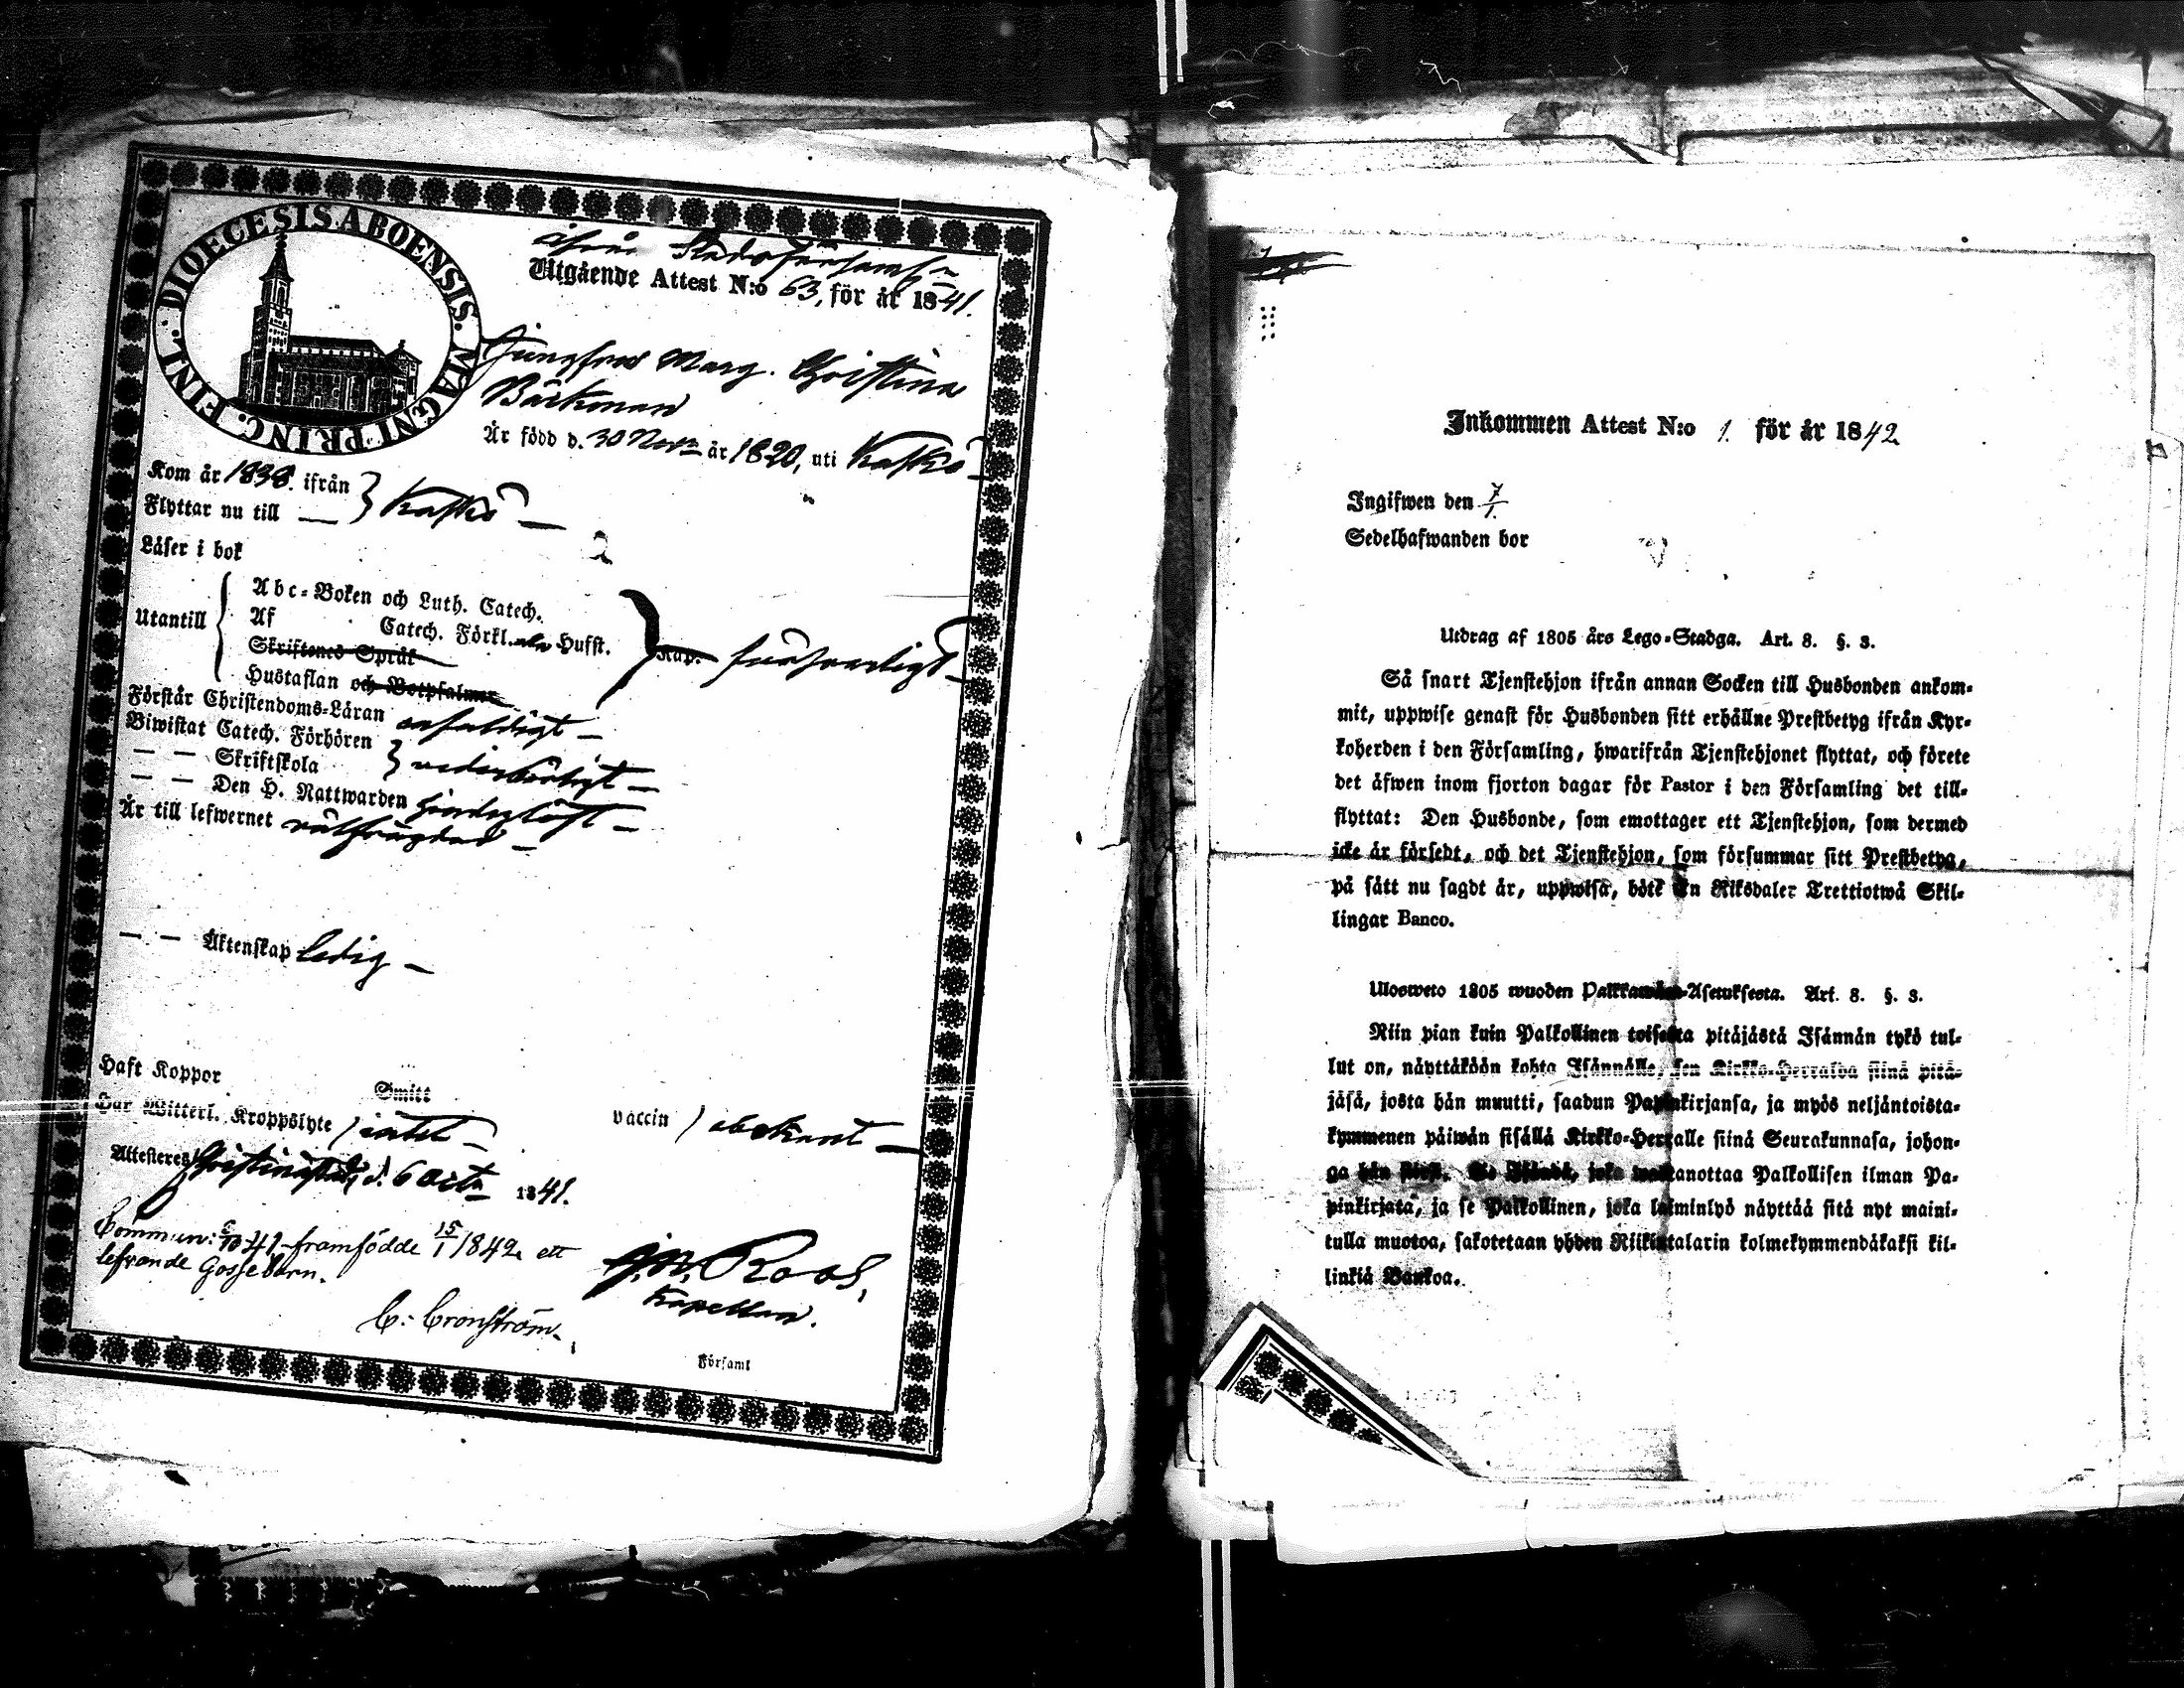 DIOECESIS ABOENSIS. MAGNI PRINC. FINL.
ifrån Stadsförsaml.
Utgående Attest N:o 63, för år 1841.
Jungfrun Marg. Christina
Bäckman
Är född d. 30 Nov. år 1820, uti Kaskö
Kom år 1838. ifrån
Flyttar nu till — } Kaskö —
Läser i bok
Utantill
Abc-Boken och Luth. Catech.
Af Catech. Förkl. Hufst.
Skriftenes Språk
Hustaflan och Botpsalmer
Kap. försvarligt —
Förstår Christendoms-Läran enfaldigt —
Biwistat Catech. Förhören
— — Skriftskola } vederbörligt —
— — Den H. Nattwarden
Är till lefwernet välfrägdad —
— — Äktenskap ledig —
Haft Koppor
Smitt
Har Witterl. Kroppslyte
vaccin ) obekant —
Attesteres Christinestad, d. 6 Oct. 1841.
Commun: 6/10 41, framfödde 15/1 1842 ett
lefvande Gossebarn.
G. W. Roos,
Kapellan.
C: Cronström.
Församl
Inkommen Attest N:o 1. för år 1842
Ingifwen den 7/1.
Sedelhafwanden bor
Utdrag af 1805 års Lego-Stadga. Art. 8. §. 3.
Så snart Tjenstehjon ifrån annan Socken till Husbonden ankom-
mit, uppwise genast för Husbonden sitt erhållne Prestbetyg ifrån Kyr-
koherden i den Församling, hwarifrån Tjenstehjonet flyttat, och förete
det äfwen inom fjorton dagar för Pastor i den Församling det till-
flyttat: Den Husbonde, som emottager ett Tjenstehjon, som dermed
icke är försedt, och det Tjenstehjon, som försummar sitt Prestbetyg,
på sätt nu sagdt är, uppwisa, böte En Riksdaler Trettiotwå Skil-
lingar Banco.
Ulosweto 1805 wuoden Palkkawäen-Asetuksesta. Art. 8. §. 3.
Niin pian kuin Palkollinen toisesta pitäjästä Isännän tykö tul-
lut on, näyttäköön kohta Isännälle, sen Kirkko-Herralda siinä pitä-
jäsä, josta hän muutti, saadun Papinkirjansa, ja myös neljäntoista-
kymmenen päiwän sisällä Kirkko-Herralle siinä Seurakunnasa, johon-
ga hän Se Isändä, joka wastanottaa Palkollisen ilman Pa-
pinkirjata, ja se Palkollinen, joka laiminlyö näyttää sitä nyt maini-
tulla muotoa, sakotetaan yhden Riikintalarin kolmekymmendäkaksi kil-
linkiä Bankoa.